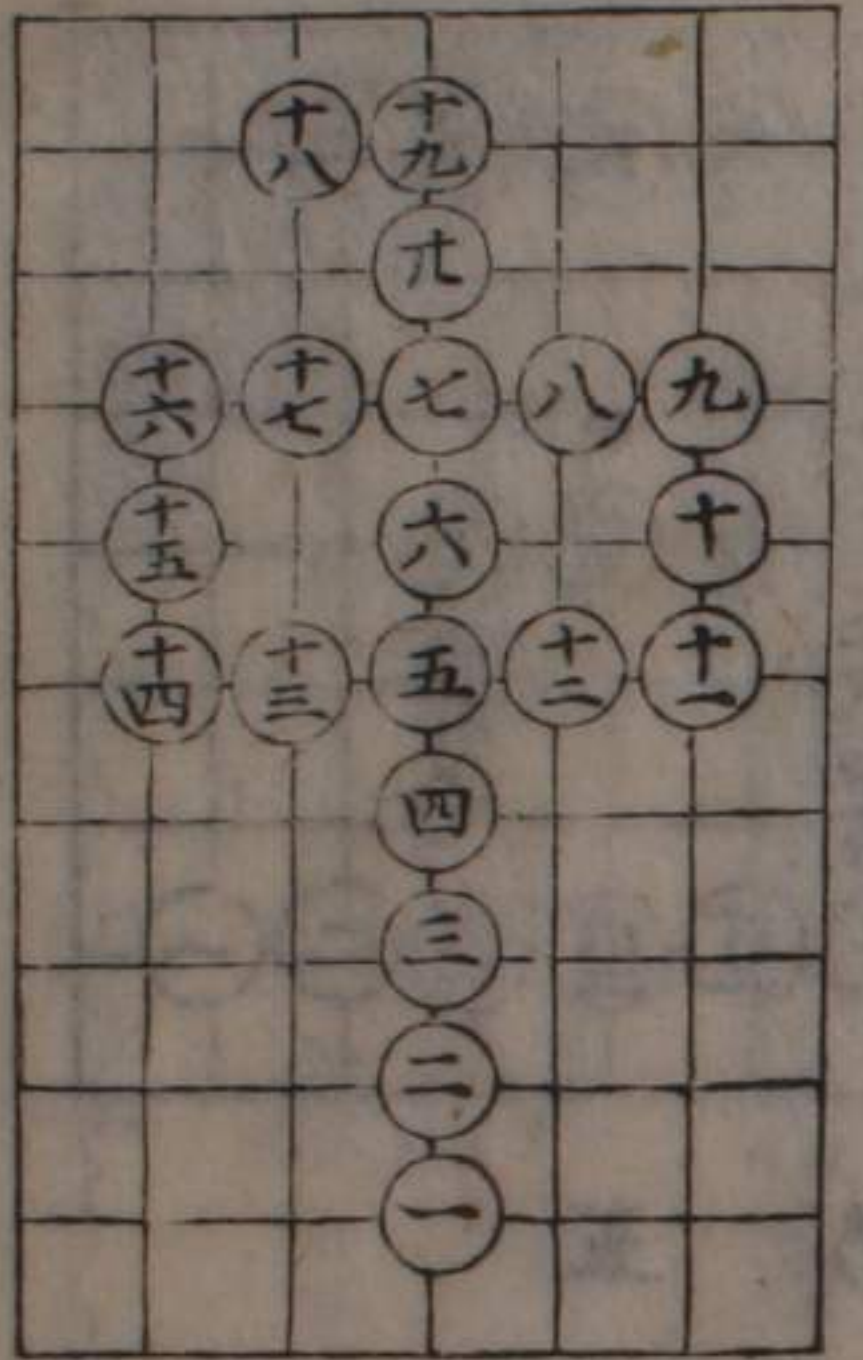 十八 十九
十六 十七 七 八 九
十五 六 十
十四 十三 五 十二 十一
四
三
二
一